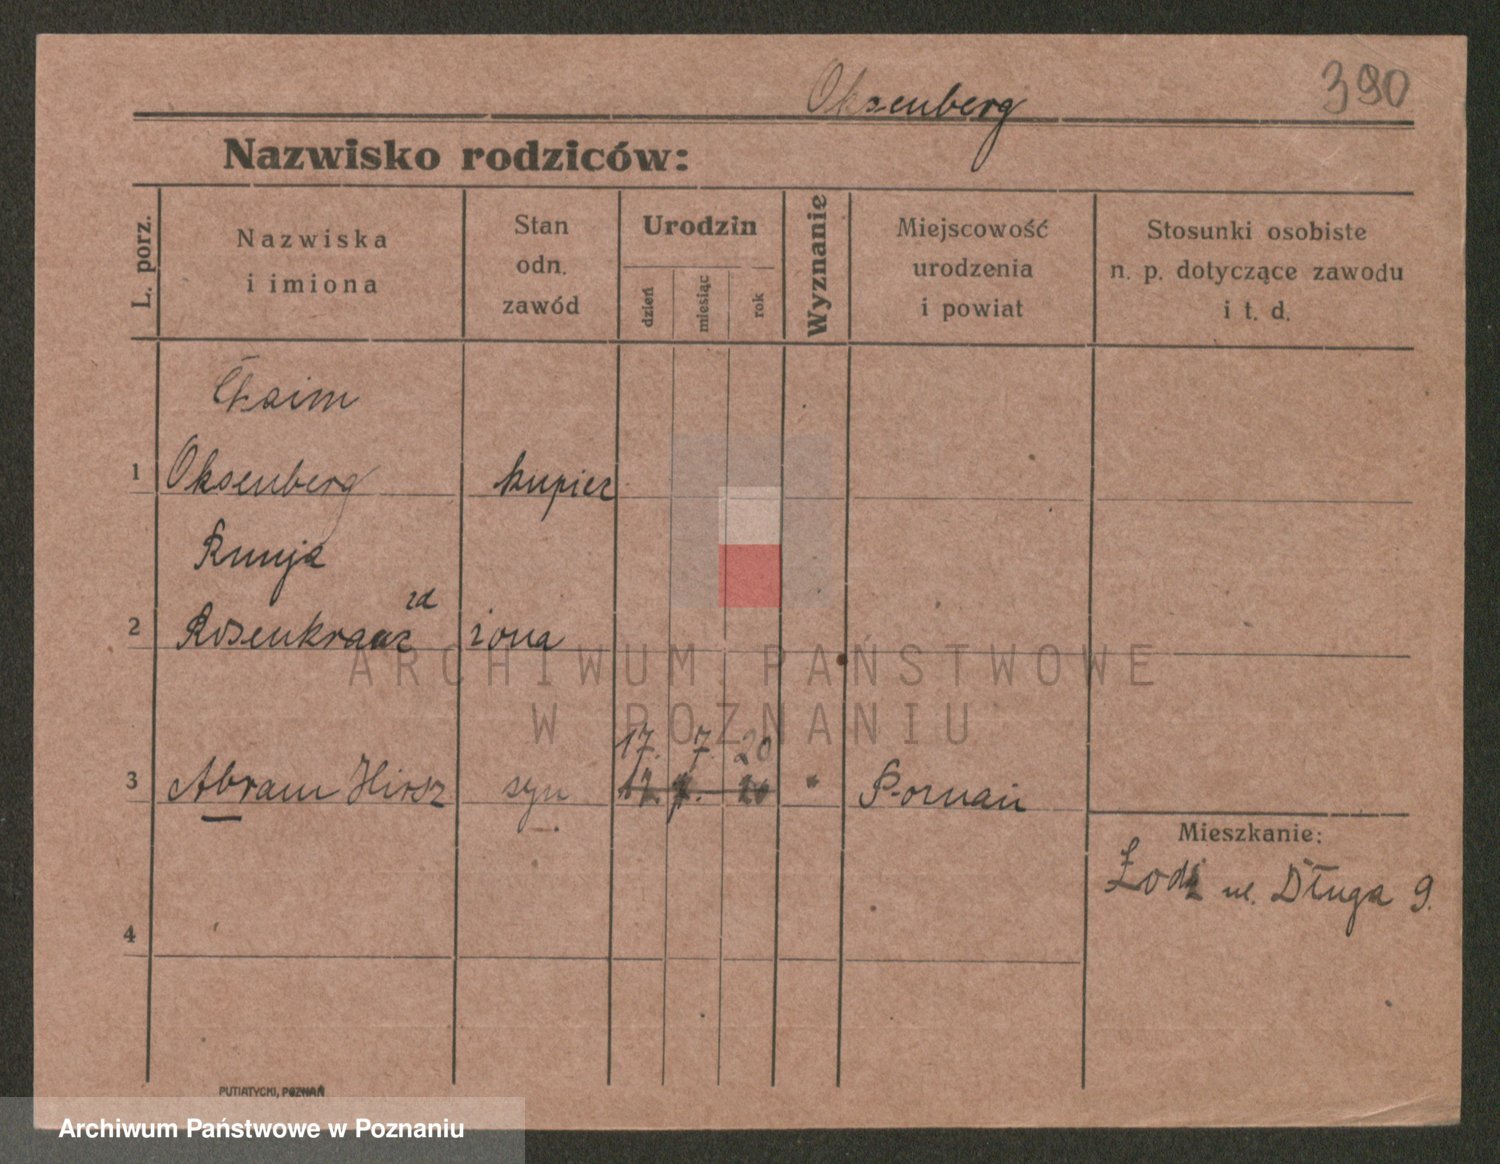 Oksenberg
390
Nazwisko rodziców:
L. porz.
Nazwiska
i imiona
Stan
odn.
zawód
Urodzin
dzień
miesiąc
rok
Wyznanie
Miejscowość
urodzenia
i powiat
Stosunki osobiste
n. p. dotyczące zawodu
i t. d.
Chaim
1 Oksenberg kupiec
Runja
zd
2 Rosenkranz żona
17. 7. 20
3 Abram Hirsz syn 17. 7. 20 " Poznań
Mieszkanie:
Łodź ul. Długa 9.
4
PUTIATYCKI, POZNAŃ
ARCHIWUM PAŃSTWOWE
W POZNANIU
Archiwum Państwowe w Poznaniu